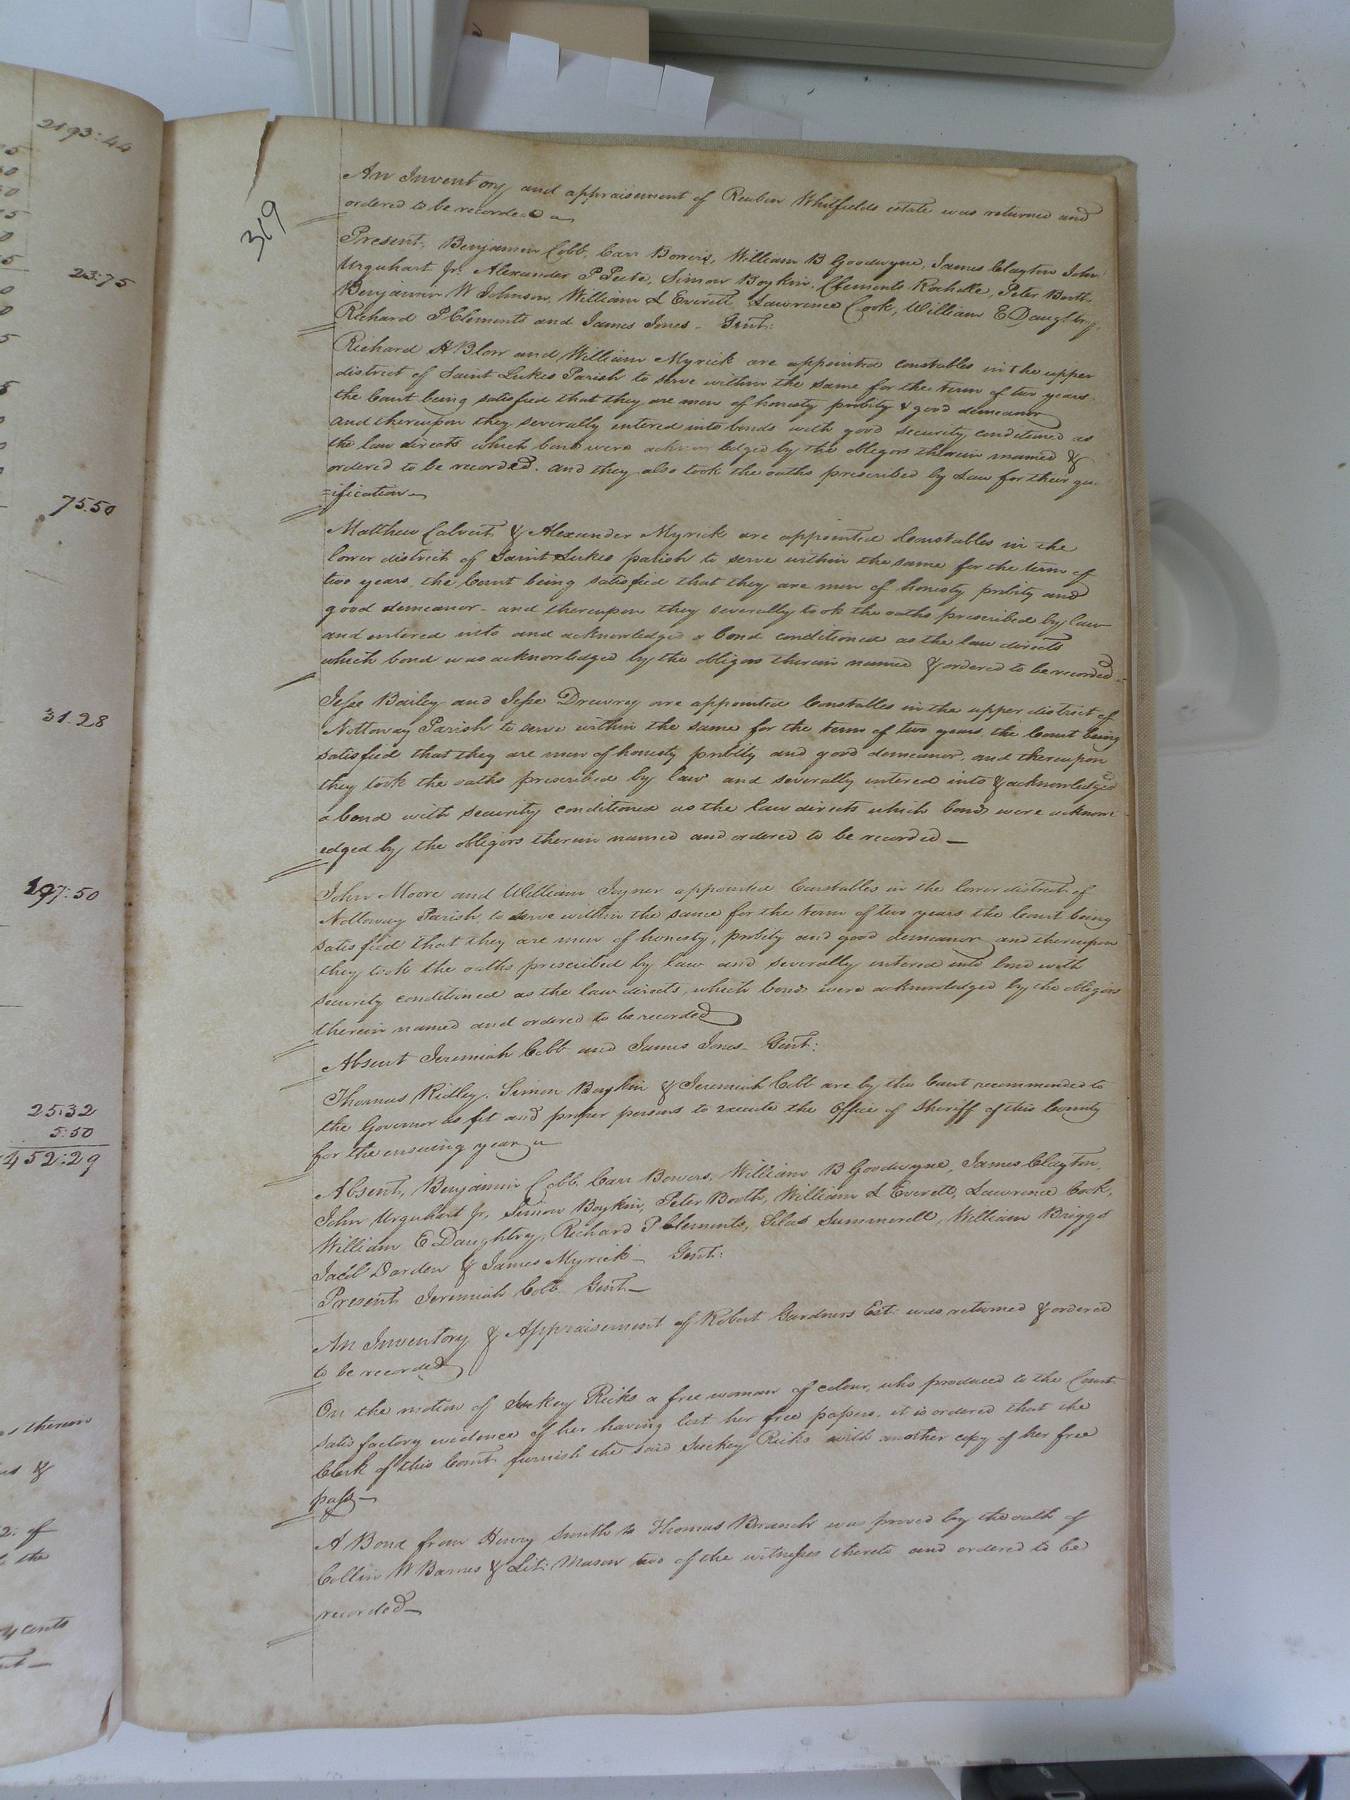 2193:44
23:75
75.50
31.28
197:50
25:32
5:50
452:29
s therein
us &
2: of
the
y cents
319
An Inventory and appraisement of Reuben Whitfields estate was returned and
ordered to be recorded
Present, Benjamin Cobb, Carr Bowers, William B Goodwyne, James Clayton John
Urquhart Jr. Alexander P Peete, Simon Boykin, Clements Rochelle, Peter Booth
Benjamin W Johnson, William L Everett, Lawrence Cook, William E Daughtry,
Richard P Clements and James Jones - Gent:
Richard H Blow and William Myrick are appointed constables in the upper
district of Saint Lukes Parish to serve within the same for the term of two years.
the Court being satisfied that they are men of honesty probity & good demeanor
and thereupon they severally entered into bonds with good security conditioned as
the law directs which bonds were acknowledged by the obligors therein named &
ordered to be recorded. and they also took the oaths prescribed by Law for their qu-
=ification
Matthew Calvert & Alexander Myrick are appointed Constables in the
lower district of Saint Lukes parish to serve within the same for the term of
two years. the Court being satisfied that they are men of honesty probity and
good demeanor - and thereupon they severally took the oaths prescribed by law
and entered into and acknowledged a bond conditioned as the law directs
which bond was acknowledged by the obligors therein named & ordered to be recorded -
Jesse Bailey and Jesse Drewry are appointed Constables in the upper district of
Nottoway Parish to serve within the same for the term of two years. the Court being
satisfied that they are men of honesty probity and good demeanor. and thereupon
they took the oaths prescribed by law and severally entered into & acknowledged
a bond with security conditioned as the law directs which bonds were acknow
edged by the obligors therein named and ordered to be recorded -
John Moore and William Joyner appointed Constables in the lower district of
Nottoway Parish, to serve within the same for the term of two years the Court being
satisfied that they are men of honesty, probity and good demeanor and thereupon
they took the oaths prescribed by law and severally entered into bond with
security conditioned as the law directs, which bonds were acknowledged by the obligors
therein named and ordered to be recorded
Absent Jeremiah Cobb and James Jones - Gent:
Thomas Ridley, Simon Boykin & Jeremiah Cobb are by this Court recommended to
the Governor as fit and proper persons to execute the Office of Sheriff of this County
for the ensuing year
Absent, Benjamin Cobb, Carr Bowers, William B Goodwyne, James Clayton,
John Urquhart Jr, Simon Boykin, Peter Booth, William L Everett, Lawrence Cook,
William E Daughtry, Richard P Clements, Silas Summerell, William Briggs
Jacob Darden & James Myrick - Gent:
Present Jeremiah Cobb Gent -
An Inventory & Appraisement of Robert Gardners Est: was returned & ordered
to be recorded
On the motion of Suckey Ricks a free woman of colour, who produced to the Court
satisfactory evidence of her having lost her free papers, it is ordered that the
Clerk of this Court furnish the said Suckey Ricks with another copy of her free
pass -
A Bond from Henry Smith to Thomas Branch was proved by the oath of
Collin W Barnes & Lit: Mason two of the witnesses thereto and ordered to be
recorded -